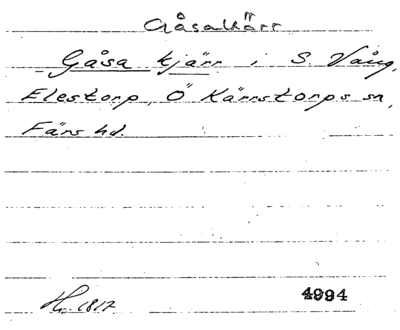 Gåsakärr
Gåsa kjärr i S. Vång,
Elestorp, Ö Kärrstorps sn,
Färs hd.
1817. 4994